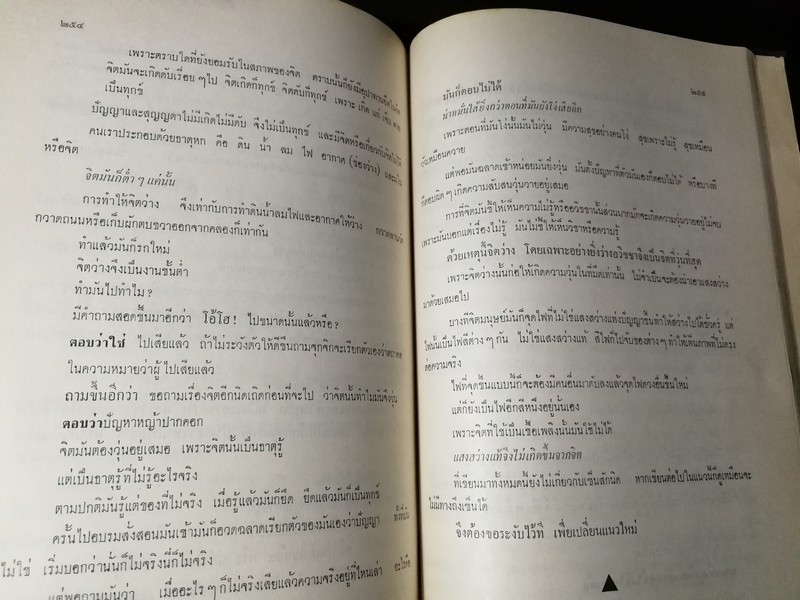 ๒๕๔
เพราะตราบใดที่ยังยอมรับในสภาพของจิต ตราบนั้นก็ยังมีอุปาทานยึดในจิต
จิตมันจะเกิดดับเรื่อยๆไป จิตเกิดก็ทุกข์ จิตดับก็ทุกข์ เพราะ เกิด แก่ เจ็บ ตาย
เป็นทุกข์
ปัญญาและสุญญตาไม่มีเกิดไม่มีดับ จึงไม่เป็นทุกข์ และมิจิตหรือเกี่ยวกับจิตไม่ได้
คนเราประกอบด้วยธาตุหก คือ ดิน น้ำ ลม ไฟ อากาศ (ช่องว่าง) และ
หรือจิต
จิตมันก็ต่ำๆ แค่นั้น
การทำให้จิตว่าง จึงเท่ากับการทำดินน้ำลมไฟและอากาศให้ว่าง
กวาดถนนหรือเก็บผักตบชวาออกจากคลองก็เท่ากัน
ทำแล้วมันก็รกใหม่
จิตว่างจึงเป็นงานชั้นต่ำ
ทำมันไปทำไม?
มีคำถามสอดขึ้นมาอีกว่า โอ้โฮ! ไปขนาดนั้นแล้วหรือ?
ตอบว่าใช่ ไปเสียแล้ว ถ้าไม่ระวังตัวให้ดีขืนถามจุกจิกจะเรียกตัวเองว่าตถาคต
ในความหมายว่าผู้ไปเสียแล้ว
ถามขึ้นอีกว่า ขอถามเรื่องจิตอีกนิดเถิดก่อนที่จะไป ว่าจิตนั้นทำไมมันจึงวุ่น
ตอบว่าปัญหาหญ้าปากคอก
จิตมันต้องวุ่นอยู่เสมอ เพราะจิตนั้นเป็นธาตุรู้
แต่เป็นธาตุรู้ที่ไม่รู้อะไรจริง
ตามปกติมันรู้แต่ของที่ไม่จริง เมื่อรู้แล้วมันก็ยึด ยึดแล้วมันก็เป็นทุกข์
ครั้นไปอบรมสั่งสอนมันเข้ามันก็อวดฉลาดเรียกตัวของมันเองว่าปัญญา ทั้งที่มัน
ไม่ใช่ เริ่มบอกว่านั่นก็ไม่จริงนี่ก็ไม่จริง
แต่พอถามมันว่า เมื่ออะไรๆก็ไม่จริงเสียแล้วความจริงอยู่ที่ไหนเล่า
มันก็ตอบไม่ได้
๒๕๕
น่าหมั่นไส้ยิ่งกว่าตอนที่มันยังโง่เสียอีก
เพราะตอนที่มันโง่นั้นมันไม่วุ่น มีความสุขอย่างคนโง่ สุขเพราะไม่รู้ สุขเหมือน
วัวเหมือนควาย
แต่พอมันฉลาดเข้าหน่อยมันยิ่งวุ่น มันตั้งปัญหาที่ตัวมันเองก็ตอบไม่ได้ หรือบางที
ก็ตอบผิดๆเกิดความสับสนวุ่นวายอยู่เสมอ
การที่จิตมันชี้ให้เห็นความไม่รู้หรืออวิชชานั้นส่วนมากมักจะเกิดความวุ่นวายอยู่ไม่จบ
เพราะมันบอกแต่เรื่องไม่รู้ มันไม่ชี้ให้เห็นวิชชาหรือความรู้
ด้วยเหตุนี้จิตว่าง โดยเฉพาะอย่างยิ่งว่างอวิชชาจึงเป็นจิตที่วุ่นที่สุด
เพราะจิตว่างนั้นก่อให้เกิดความวุ่นในที่มืดเท่านั้น ไม่จำเป็นจะต้องนำเอาแสงสว่าง
มาด้วยเสมอไป
บางทีจิตมนุษย์มันก็จุดไฟที่ไม่ใช่แสงสว่างแห่งปัญญาขึ้นทำให้สว่างไปได้ชั่วครู่ แต่
ไฟนั้นเป็นไฟสีต่างๆกัน ไม่ใช่แสงสว่างแท้ สีไฟก็ไปจับของต่างๆทำให้เห็นภาพที่ไม่ตรง
ต่อความจริง
ไฟที่จุดขึ้นแบบนี้ก็จะต้องมีคนอื่นมาดับลงแล้วจุดไฟดวงอื่นขึ้นใหม่
แต่ก็ยังเป็นไฟอีกสีหนึ่งอยู่นั่นเอง
เพราะจิตที่ใช้เป็นเชื้อเพลิงนั้นมันใช้ไม่ได้
แสงสว่างแท้จึงไม่เกิดขึ้นจากจิต
ที่เขียนมาทั้งหมดนี้ยังไม่เกี่ยวกับเซ็นสักนิด หากเขียนต่อไปในแนวนี้ก็ดูเหมือนจะ
ไม่มีทางถึงเซ็นได้
จึงต้องขอระงับไว้ที เพื่อเปลี่ยนแนวใหม่